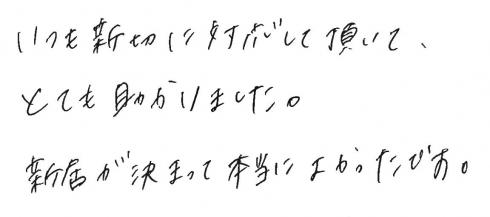 いつも親切に対応して頂いて、
とても助かりました。
新居が決まって本当によかったです。